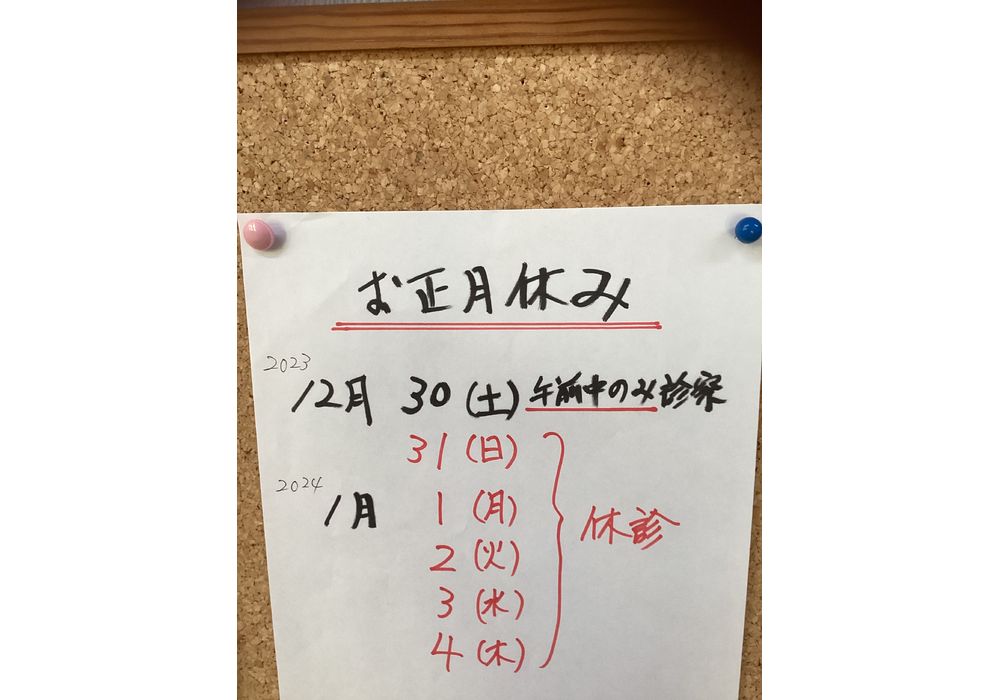 お正月休み
2023
12月 30(土)午前中のみ診察
31(日)
2024
1月 1(月)
2(火)
休診
3(水)
4(木)